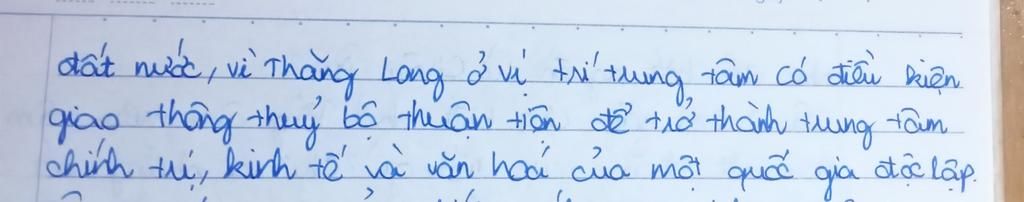 đất nước, vì Thăng Long ở vị trí trung tâm có điều kiện
giao thông thuỷ bộ thuận tiện để trở thành trung tâm
chính trị, kinh tế và văn hoá của một quốc gia độc lập.